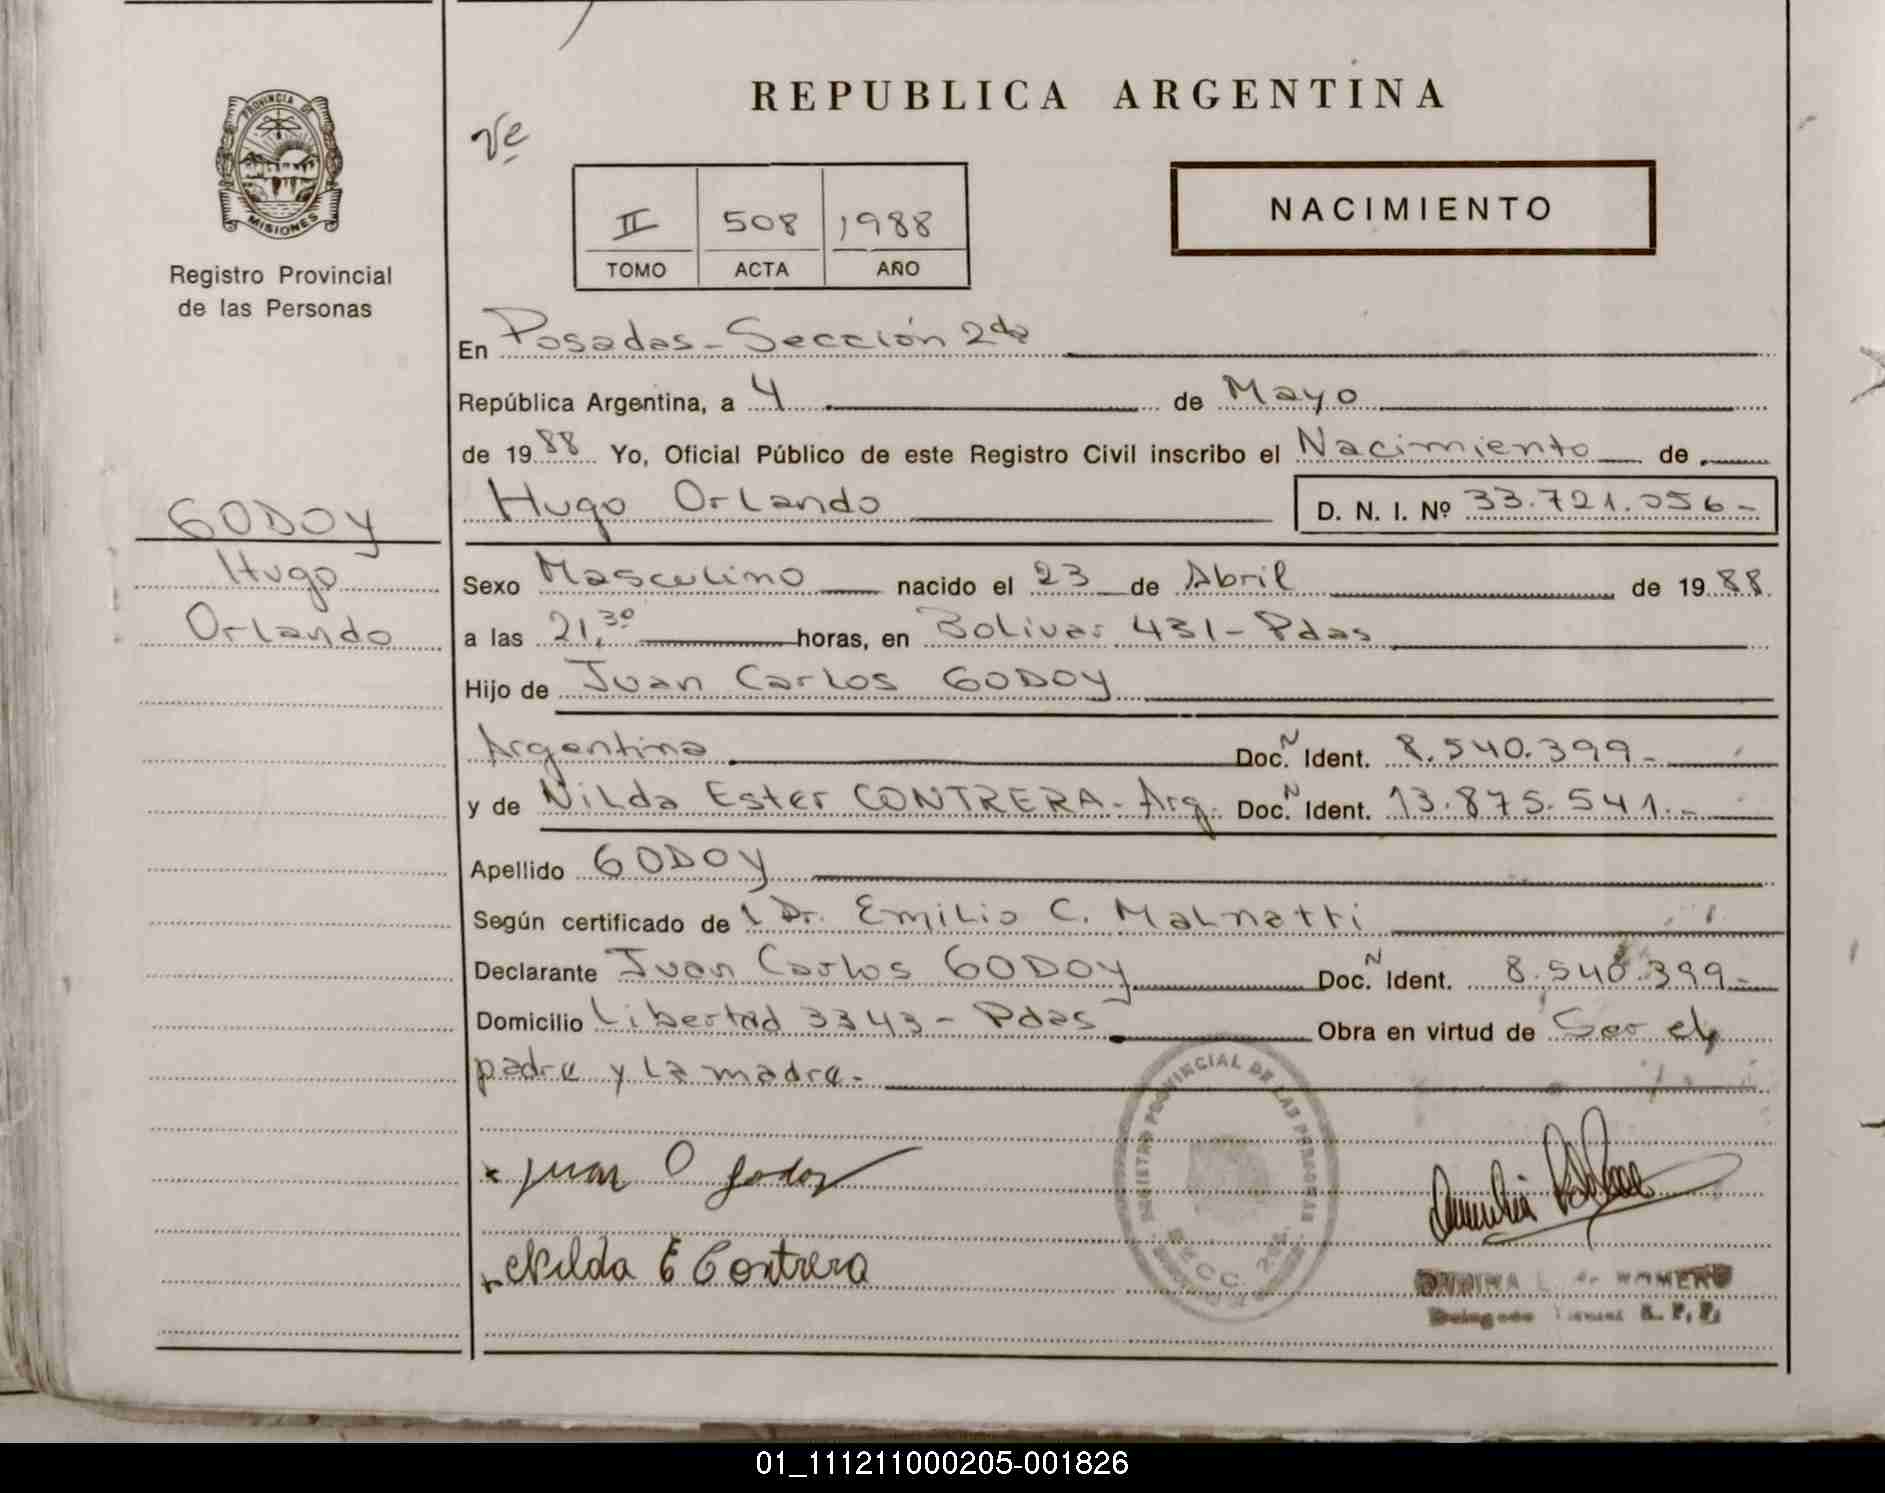 PROVINCIA DE
MISIONES
Registro Provincial
de las Personas
REPUBLICA ARGENTINA
Ve
II 508 1988
TOMO ACTA AÑO
NACIMIENTO
En Posadas - Sección 2da
República Argentina, a 4 de Mayo
de 1988 Yo, Oficial Público de este Registro Civil inscribo el Nacimiento de
Hugo Orlando D. N. I. Nº 33.721.056-
GODOY
Hugo
Orlando
Sexo Masculino nacido el 23 de Abril de 1988
a las 21,30 horas, en Bolivar 431 - Pdas
Hijo de Juan Carlos GODOY
Argentina Doc. N Ident. 8.540.399-
y de Nilda Ester CONTRERA - Arg. Doc. N Ident. 13.875.541.-
Apellido GODOY
Según certificado de l Dr. Emilio C. Malnatti
Declarante Juan Carlos GODOY Doc. N Ident. 8.540.399-
Domicilio Libertad 3343 - Pdas Obra en virtud de Ser el
padre y la madre.
REGISTRO PROVINCIAL DE LAS PERSONAS
SECC. 2da.
x Juan C Godoy
x Nilda E Contrera
L. de ROMERO
Delegado R. P. P.
01_111211000205-001826